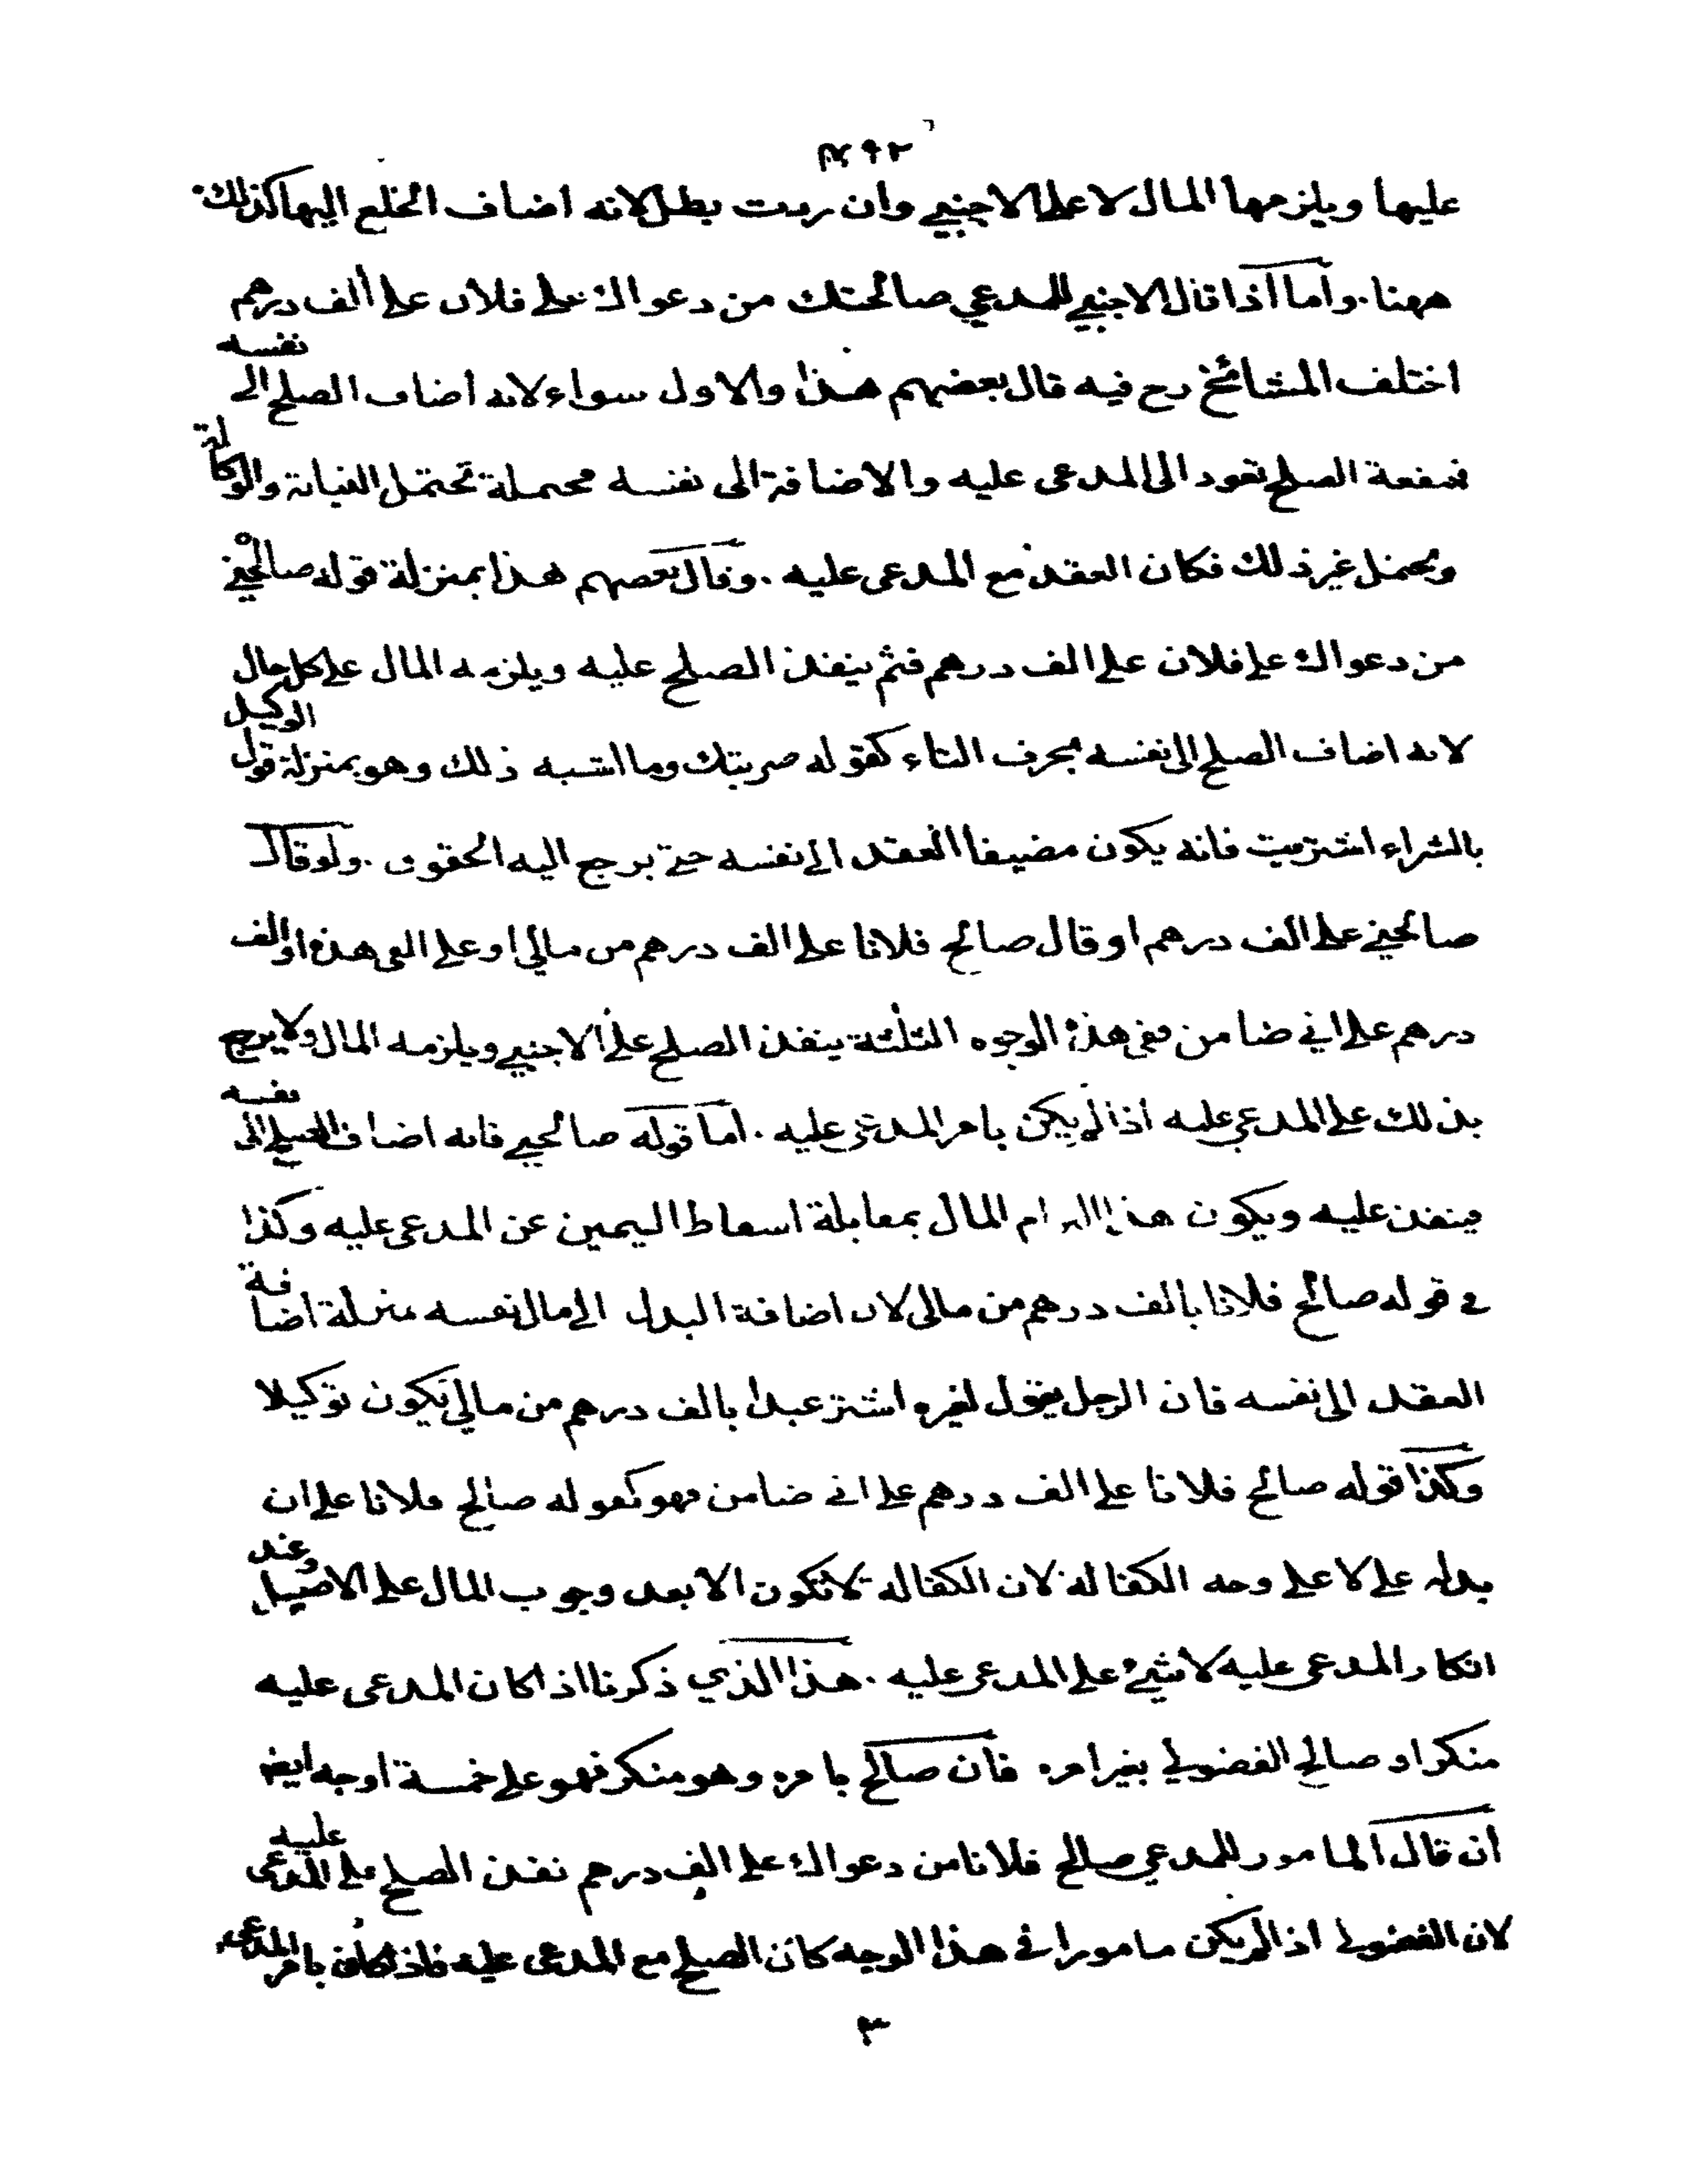 عليها ويلزمها المال لا على الاجنبي وان ردت بطل لانه اضاف الخلع اليها كذلك
ههنا . واما اذا قال الاجنبي للمدعي صالحتك من دعواك على فلان على الف درهم
اختلف المشائخ رح فيه قال بعضهم هذا والاول سواء لانه اضاف الصلح الى نفسه
فمنفعة الصلح تعود الى المدعى عليه والاضافة الى نفسه محتملة تحتمل النيابة والوكالة
ويحتمل غير ذلك فكان العقد مع المدعى عليه . وقال بعضهم هذا بمنزلة قوله صالحني
من دعواك على فلان على الف درهم فثم ينفذ الصلح عليه ويلزمه المال على كل حال
لانه اضاف الصلح الى نفسه بحرف التاء كقوله ضربتك وما اشبه ذلك وهو بمنزلة قول الوكيل
بالشراء اشتريت فانه يكون مضيفا العقد الى نفسه حتى يرجع اليه الحقوق . ولو قال
صالحني على الف درهم او قال صالح فلانا على الف درهم من مالي او على الفى هذه او الف
درهم على اني ضامن ففى هذه الوجوه الثلثة ينفذ الصلح على الاجنبي ويلزمه المال ولا يرجع
بذلك على المدعى عليه اذا لم يكن بامر المدعى عليه . اما قوله صالحني فانه اضاف الصلح الى نفسه
فينفذ عليه ويكون هذا التزام المال بمقابلة اسقاط اليمين عن المدعى عليه وكذا
في قوله صالح فلانا بالف درهم من مالى لان اضافة البدل الى مال نفسه بمنزلة اضافة
العقد الى نفسه فان الرجل يقول لغيره اشتر عبدا بالف درهم من مالي يكون توكيلا
وكذا قوله صالح فلانا على الف درهم على انى ضامن فهو كقوله صالح فلانا على ان
بدله على لا على وجه الكفالة لان الكفالة لا تكون الا بعد وجوب المال على الاصيل وعند
انكار المدعى عليه لا شيئ على المدعى عليه . هذا الذي ذكرنا اذا كان المدعى عليه
منكرا وصالح الفضولي بغير امره فان صالح بامره وهو منكر فهو على خمسة اوجه ايضا
ان قال المامور للمدعي صالح فلانا من دعواك على الف درهم نفذ الصلح على المدعى عليه
لان الفضولي اذا لم يكن مامورا في هذا الوجه كان الصلح مع المدعى عليه فاذا كان بامر المدعى
٣